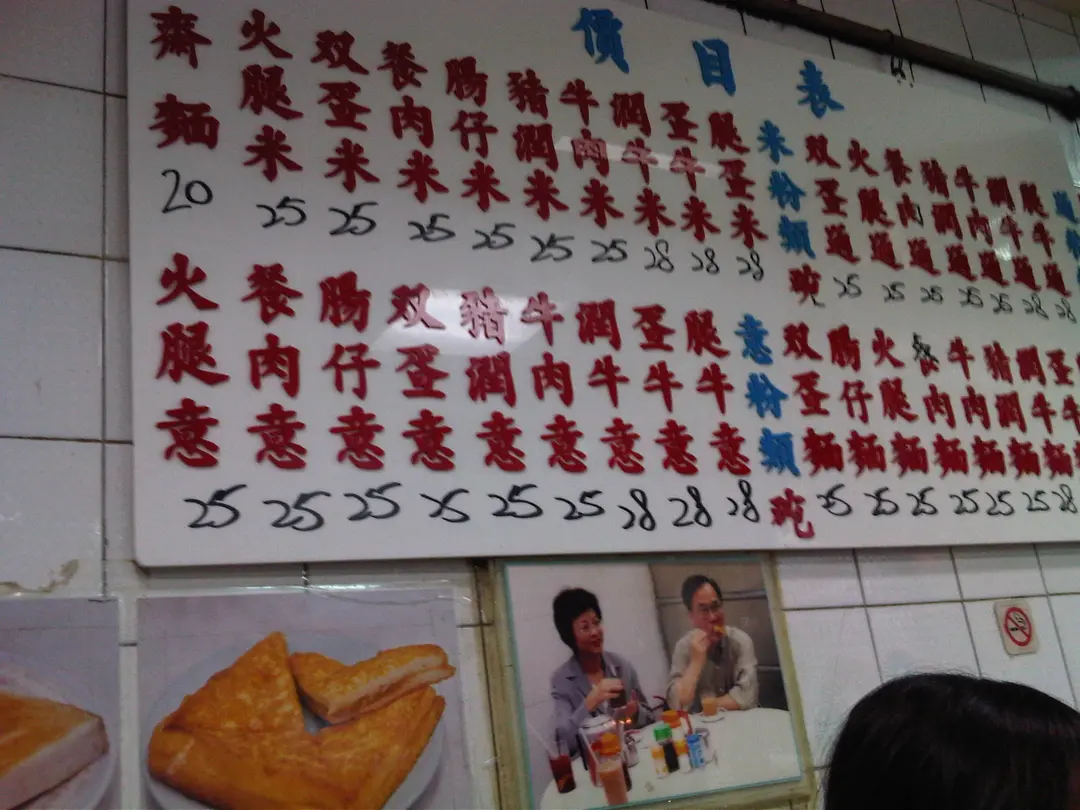 價目表
腿牛通 28
潤牛通 28
牛肉通 25
猪潤通 25
餐肉通 25
火腿通 25
双蛋通 25
米粉類 碗
腿蛋米 28
蛋牛米 28
潤牛米 28
牛肉米 25
猪潤米 25
腸仔米 25
餐肉米 25
双蛋米 25
火腿米 25
齋麵 20
蛋牛麵
潤牛麵 28
猪潤麵 25
牛肉麵 25
餐肉麵 25
火腿麵 25
腸仔麵 25
双蛋麵 25
意粉類 碗
腿牛意 28
蛋牛意 28
潤牛意 28
牛肉意 25
猪潤意 25
双蛋意 25
腸仔意 25
餐肉意 25
火腿意 25